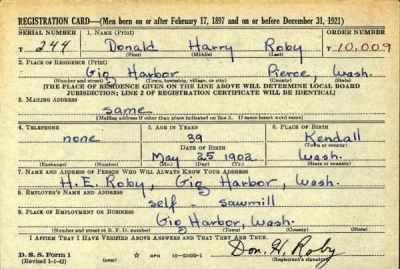 REGISTRATION CARD—(Men born on or after February 17, 1897 and on or before December 31, 1921)
SERIAL NUMBER 1. NAME (Print) ORDER NUMBER
T 244 Donald Harry Roby T 10,009
(First) (Middle) (Last)
2. PLACE OF RESIDENCE (Print)
Gig Harbor Pierce, Wash.
(Number and street) (Town, township, village, or city) (County) (State)
[THE PLACE OF RESIDENCE GIVEN ON THE LINE ABOVE WILL DETERMINE LOCAL BOARD
JURISDICTION; LINE 2 OF REGISTRATION CERTIFICATE WILL BE IDENTICAL]
3. MAILING ADDRESS
same
[Mailing address if other than place indicated on line 2. If same insert word same]
4. TELEPHONE 5. AGE IN YEARS 6. PLACE OF BIRTH
none 39 Kendall
DATE OF BIRTH (Town or county)
May 25 1902 Wash.
(Exchange) (Number) (Mo.) (Day) (Yr.) (State or country)
7. NAME AND ADDRESS OF PERSON WHO WILL ALWAYS KNOW YOUR ADDRESS
H. E. Roby, Gig Harbor, Wash.
8. EMPLOYER'S NAME AND ADDRESS
self - sawmill
9. PLACE OF EMPLOYMENT OR BUSINESS
Gig Harbor, Wash.
(Number and street or R. F. D. number) (Town) (County) (State)
I AFFIRM THAT I HAVE VERIFIED ABOVE ANSWERS AND THAT THEY ARE TRUE.
D. S. S. Form 1 Don. H. Roby
(Revised 1-1-42) (over) (Registrant's signature)